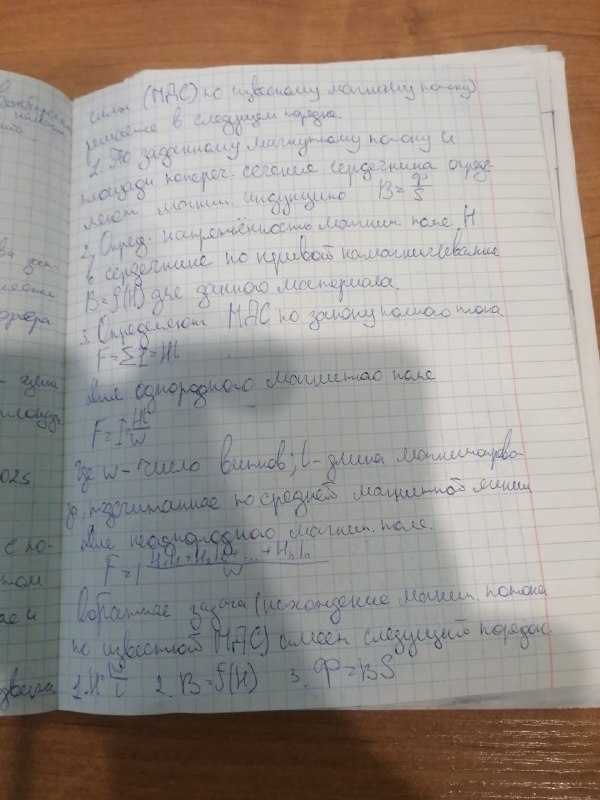 силы (МДС) по извесному магнитному потоку)
решается в следущем порядке.
1. По заданному магнутному потоку и
площади попереч. сечение сердечника опреде-
ляют магнит. индукцию B = Ф/S
2. Опред. напряжённость магнит. поле H
в сердечнике по кривой намагничивание
B = f(H) для данного материала.
3. Определяют МДС по закону полного тока.
F = ΣI = Hl
Для однородного магнитного поле
F = I = Hl/w
где w - число витков; l - длина магнитопрово-
да, подщитанное по средней магнитной линии
Для неоднородного магнит. поле.
F = I H₁l₁ + H₂l₂ + ... + Hₙlₙ / w
обратная задача (нахождение магнит. потока
по известной МДС) имеет следущий порядок.
1. H = Iw/l 2. B = f(H) 3. Ф = BS
025